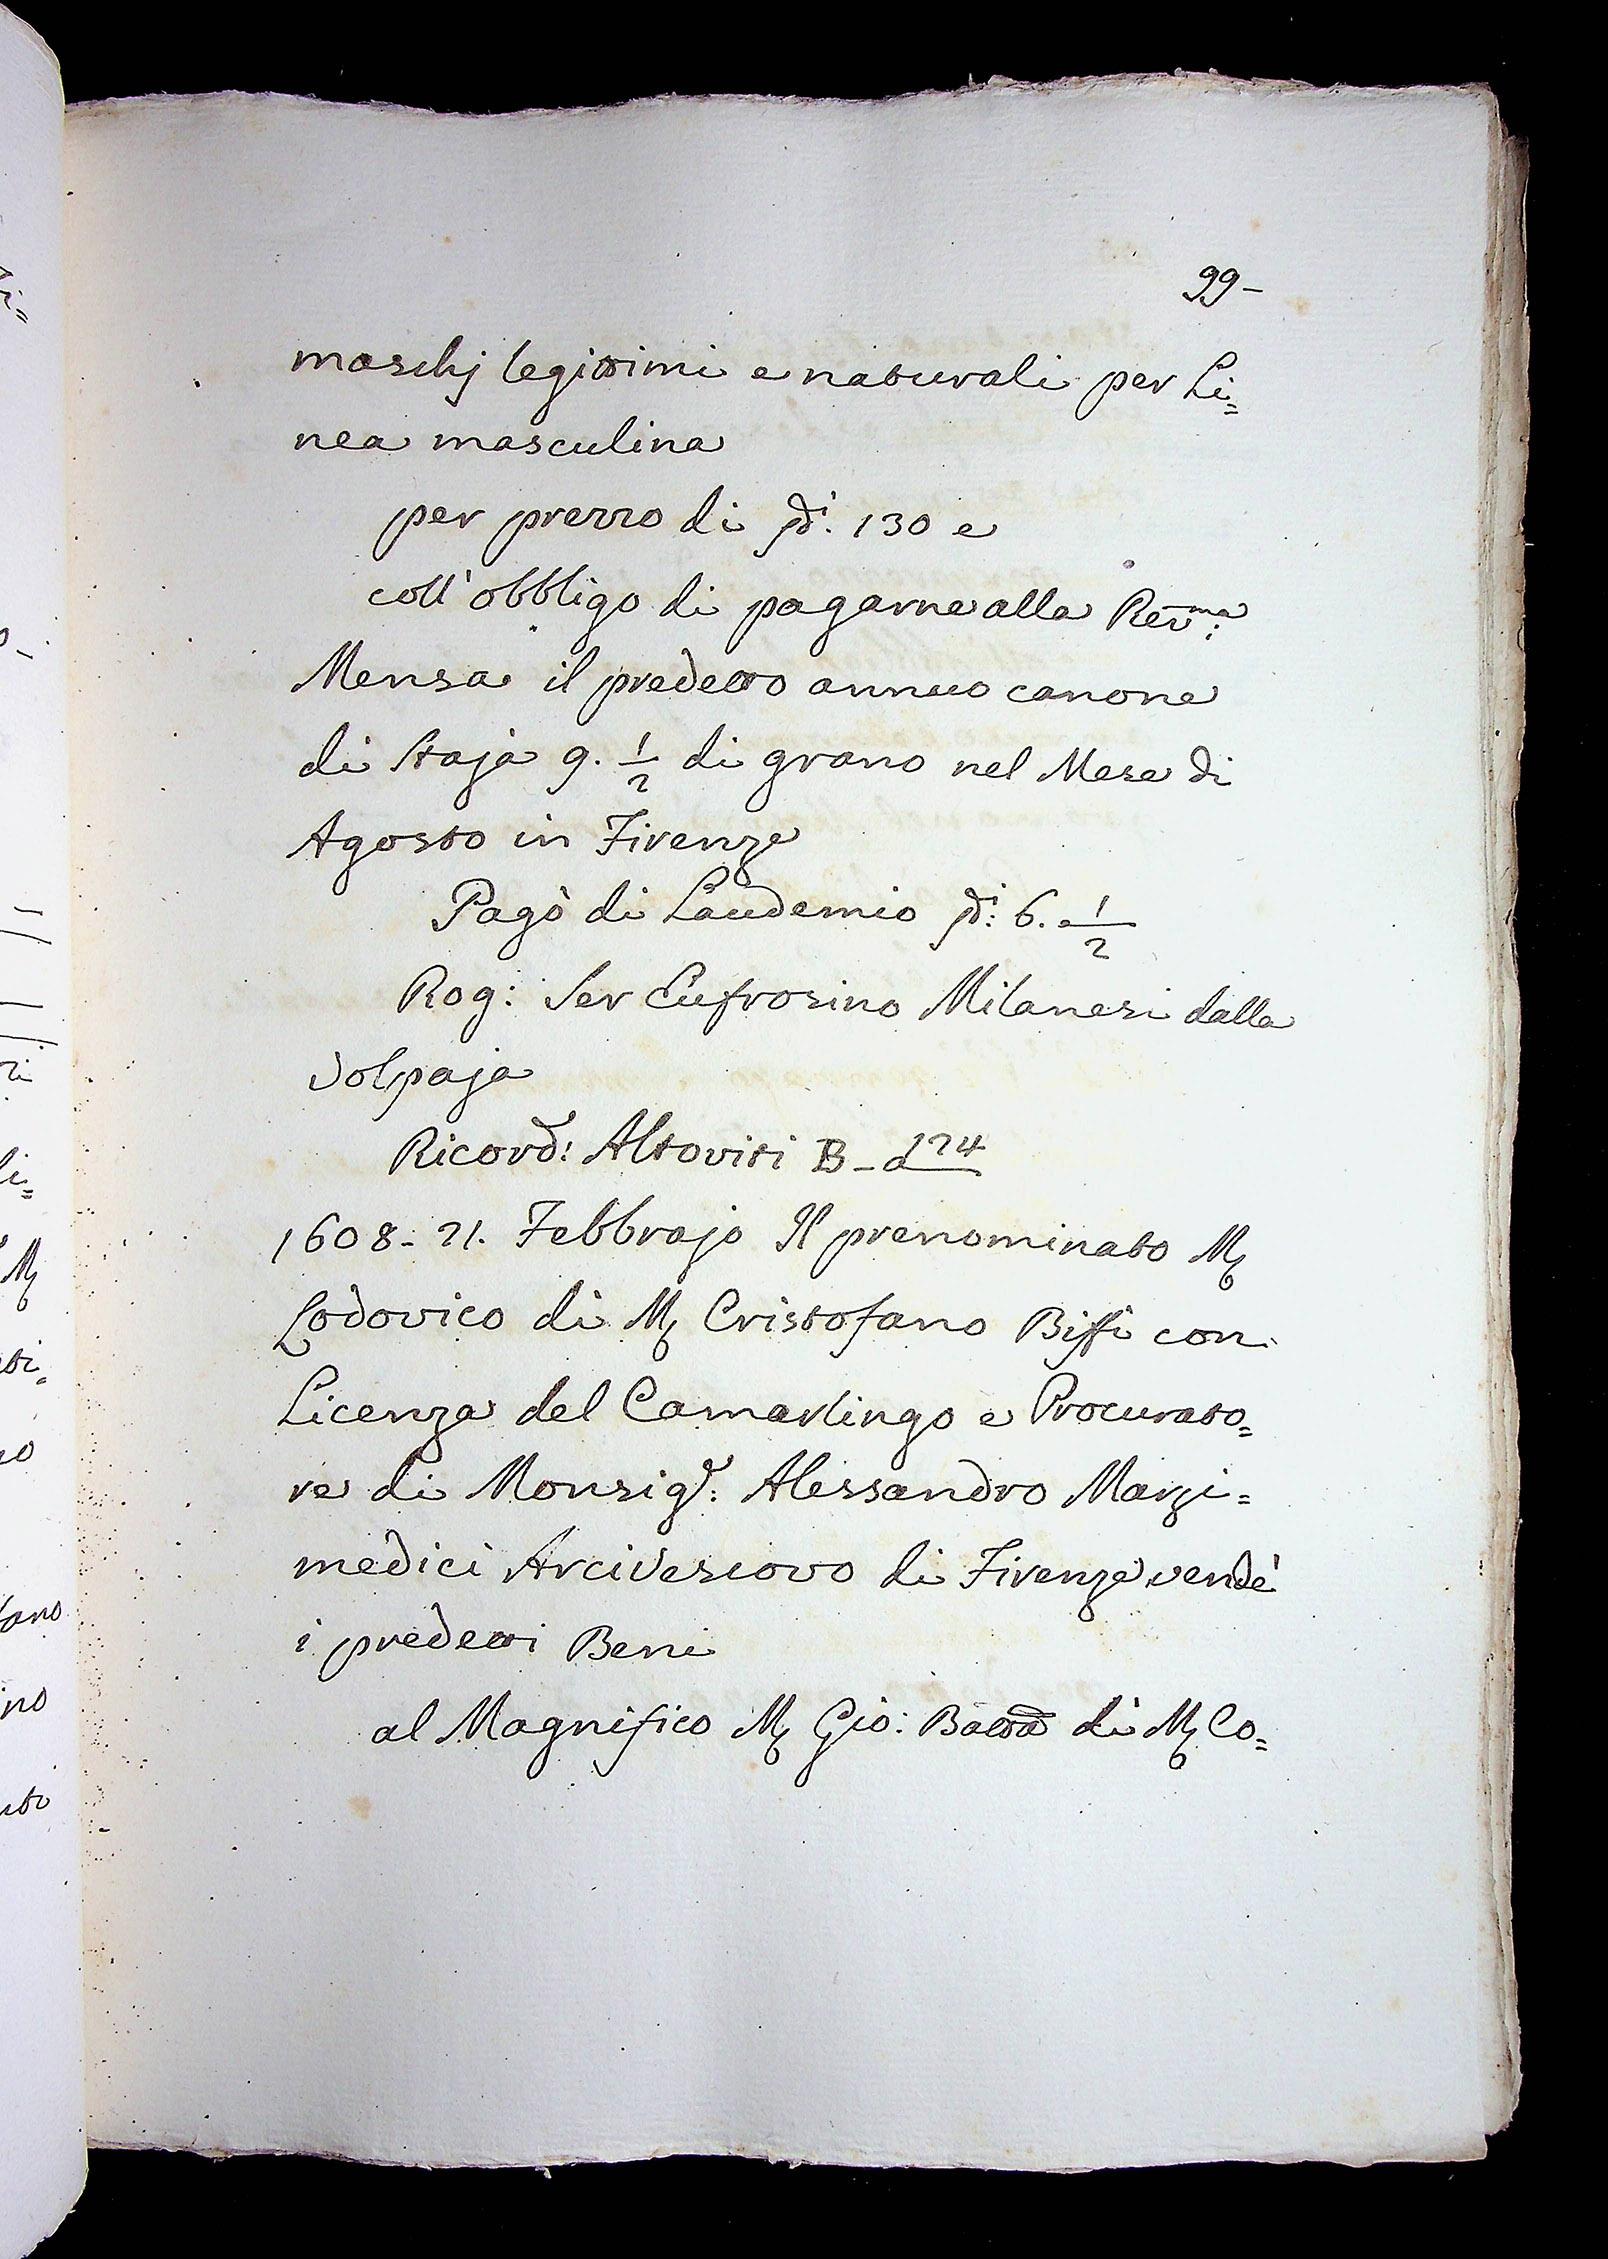 99-
maschj legittimi e naturali per Li=
nea masculina
per prezzo di di. 130 e
coll'obbligo di pagarne alla Rev.ma:
Mensa il predetto annuo canone
di Staja 9. 1/2 di grano nel Mese di
Agosto in Firenze
Pagò di Laudemio di: 6. 1/2
Rog: Ser Eufrosino Milanesi dalla
Volpaja
Ricord: Altoviti B - a 174
1608 - 21. Febbrajo Il prenominato M
Lodovico di M Cristofano Biffi con
Licenza del Camarlingo e Procurato=
re di Monsigr: Alessandro Marzi=
medici Arcivescovo di Firenze vendè
i predetti Beni
al Magnifico M Gio: Batta di M Co=